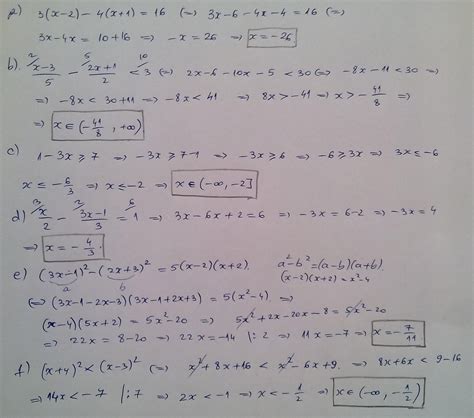 a) 3(x-2) - 4(x+1) = 16 (=) 3x-6-4x-4=16 (=)
3x-4x = 10+16 => -x=26 => x=-26
b) ²/ (x-3)/5 - ⁵/ (2x+1)/2 <¹⁰/ 3 (=) 2x-6-10x-5 < 30 (=) -8x-11<30 =>
=> -8x < 30+11 => -8x<41 => 8x>-41 => x> -41/8 =>
=> x∈(-41/8, +∞)
c) 1-3x ≥ 7 => -3x ≥ 7-1 => -3x ≥ 6 => -6 ≥ 3x => 3x ≤ -6
x ≤ -6/3 => x ≤ -2 => x∈(-∞,-2]
d) ³/ x/2 - ²/ (3x-1)/3 = 1 => 3x-6x+2=6 => -3x=6-2 => -3x=4
=> x=-4/3.
e) (3x-1)²-(2x+3)² = 5(x-2)(x+2). a²-b²=(a-b)(a+b).
a b (x-2)(x+2)=x²-4
(=) (3x-1-2x-3)(3x-1+2x+3) = 5(x²-4) =>
(x-4)(5x+2) = 5x²-20 => 5x²+2x-20x-8=5x²-20
=> 22x = 8-20 => 22x=-14 |:2 => 11x=-7 => x=-7/11
f) (x+4)² < (x-3)² => x²+8x+16 < x²-6x+9. => 8x+6x < 9-16
=> 14x<-7 |:7 => 2x<-1 => x<-1/2 => x∈(-∞,-1/2)